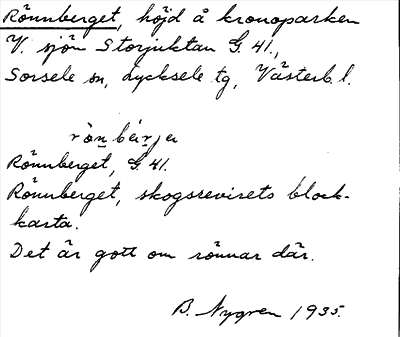 Rönnberget, höjd å kronoparken
V. sjön Storjuktan G. 41.,
Sorsele sn, Lycksele tg, Västerb. l.
Rönnberget, G. 41.
Rönnberget, skogsrevirets block-
karta.
Det är gott om rönnar där.
B. Nygren 1935.